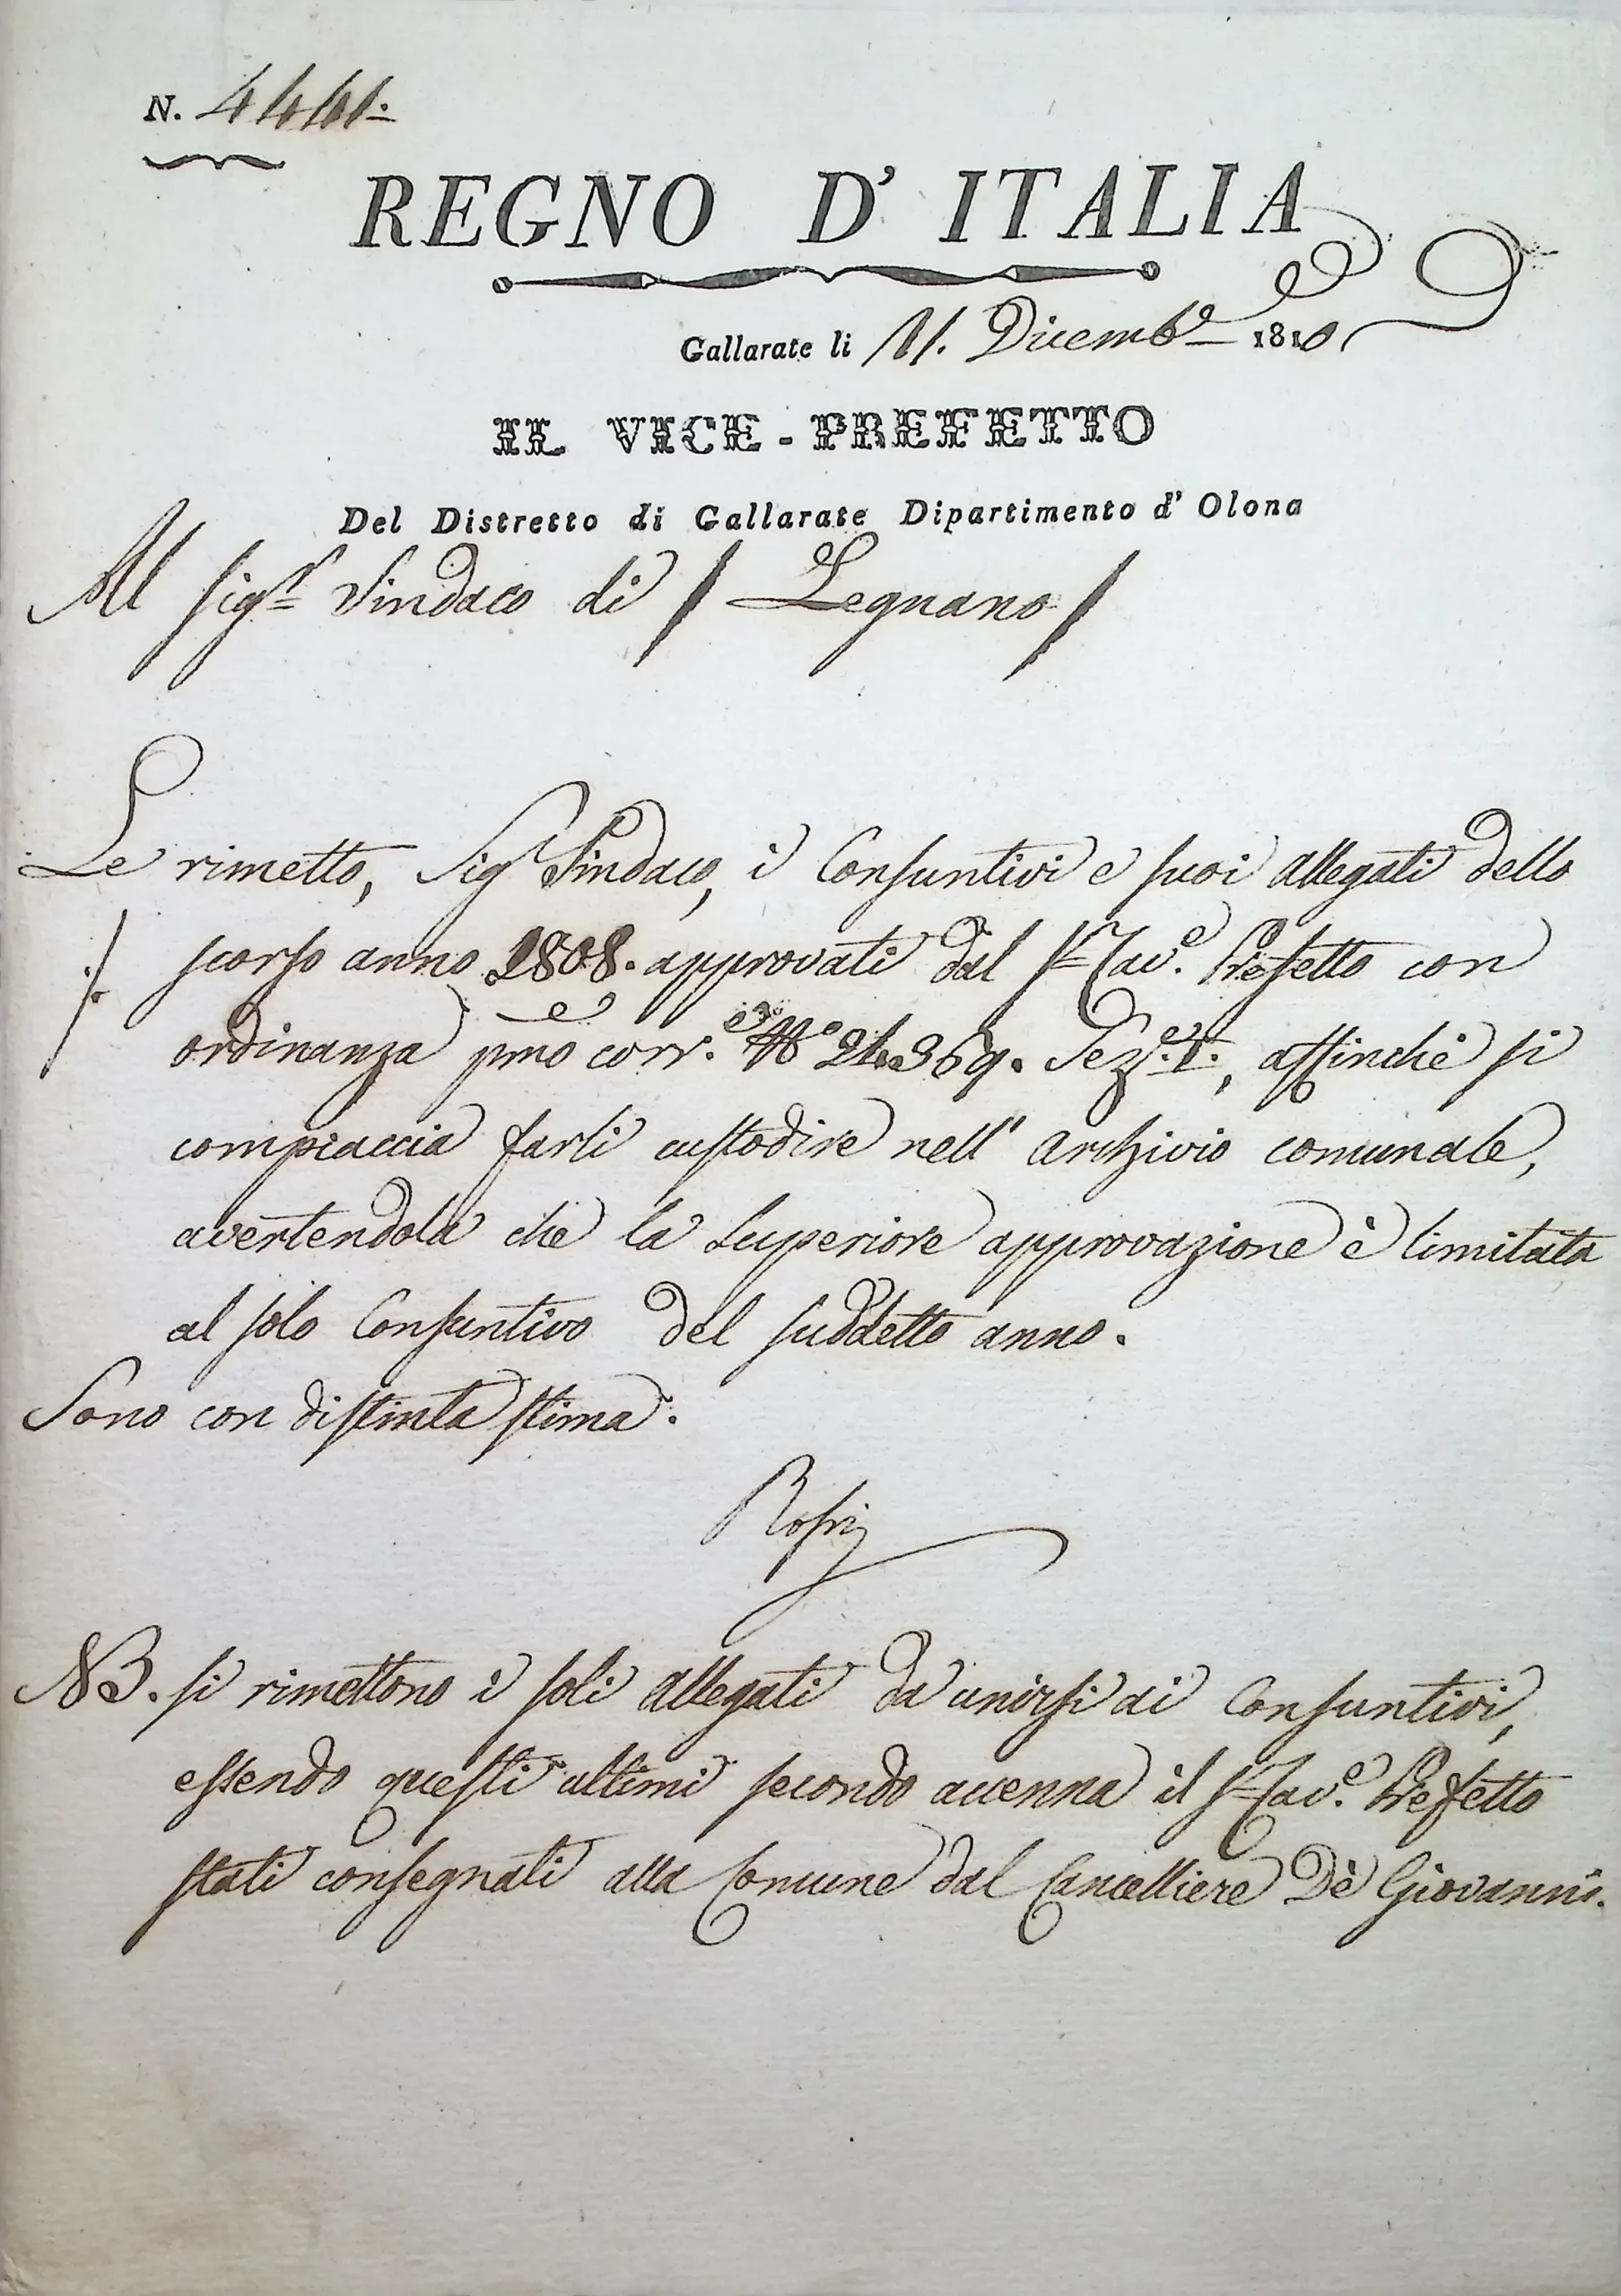 N. 4441.
REGNO D' ITALIA
Gallarate li 11. Dicemb.e 1810
IL VICE-PREFETTO
Del Distretto di Gallarate Dipartimento d' Olona
Al Sig.r Sindaco di Legnano
Le rimetto, Sig.r Sindaco, i Consuntivi e suoi allegati dello
scorso anno 1808. approvati dal S.r Cav.e Prefetto con
ordinanza pmo corr.e N.o Sez.e, affinchè si
compiaccia farli custodire nell' archivio comunale,
avertendola che la Superiore approvazione è limitata
al solo Consuntivo del suddetto anno.
Sono con distinta stima.
Rossi
NB. si rimettono i soli allegati da unirsi ai Consuntivi,
essendo questi ultimi secondo accenna il S.r Cav.e Prefetto
stati consegnati alla Comune dal Cancelliere Dè Giovanni.